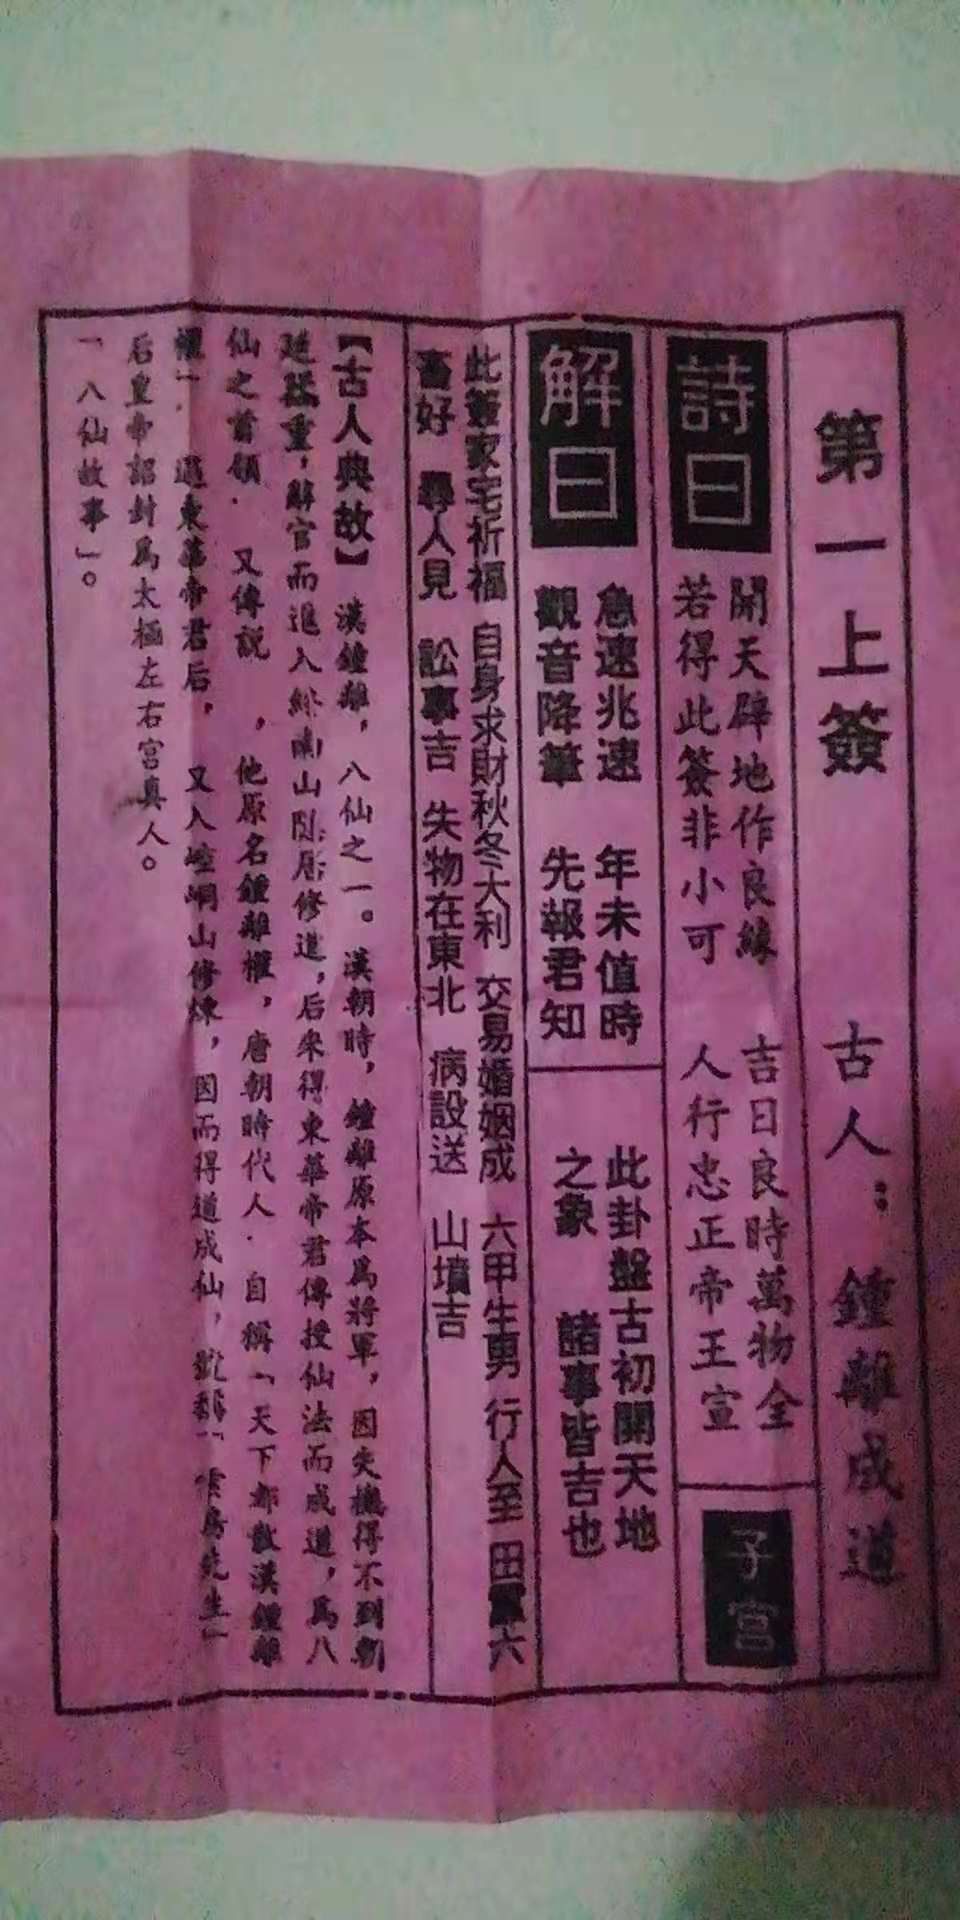 第一上簽　古人：鍾離成道
詩曰
開天辟地作良緣　吉日良時萬物全
若得此簽非小可　人行忠正帝王宣
子宫
解曰
急速兆速　年未值時
觀音降筆　先報君知
此卦盤古初開天地
之象　諸事皆吉也
此簽家宅祈福　自身求財秋冬大利　交易婚姻成　六甲生男　行人至　田蠶六
畜好　尋人見　訟事吉　失物在東北　病設送　山墳吉
【古人典故】　漢鍾離，八仙之一。漢朝時，鍾離原本爲將軍，因失機得不到朝
廷器重，解官而進入終南山隱居修道，后來得東華帝君傳授仙法而成道，爲八
仙之首領．又傳説　，他原名鍾離權，唐朝時代人．自稱「天下都散漢鍾離
權」．遇東華帝君后，又入崆峒山修煉，因而得道成仙，號「雲房先生」
后皇帝詔封爲太極左右宫真人。
「八仙故事」。